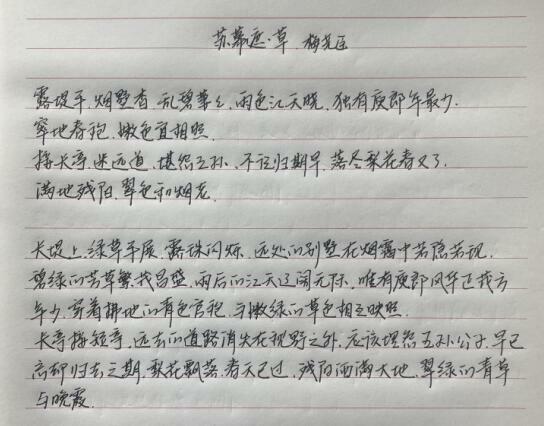 苏幕遮·草 梅尧臣
露堤平.烟墅杳.乱碧萋萋.雨色江天晓.独有庾郎年最少.
窣地春袍.嫩色宜相照.
接长亭.迷远道.堪怨王孙.不记归期早.落尽梨花春又了.
满地残阳.翠色和烟老.
长堤上.绿草平展.露珠闪烁.远处的别墅在烟霭中若隐若现.
碧绿的芳草繁茂昌盛.雨后的江天辽阔无际.唯有庾郎风华正茂方
年少.穿着拂地的青色官袍.与嫩绿的草色相互映照.
长亭接短亭.远去的道路消失在视野之外.应该埋怨王孙公子.早已
忘却归去之期.梨花飘落.春天已过.残阳洒满大地.翠绿的青草
与晚霞.